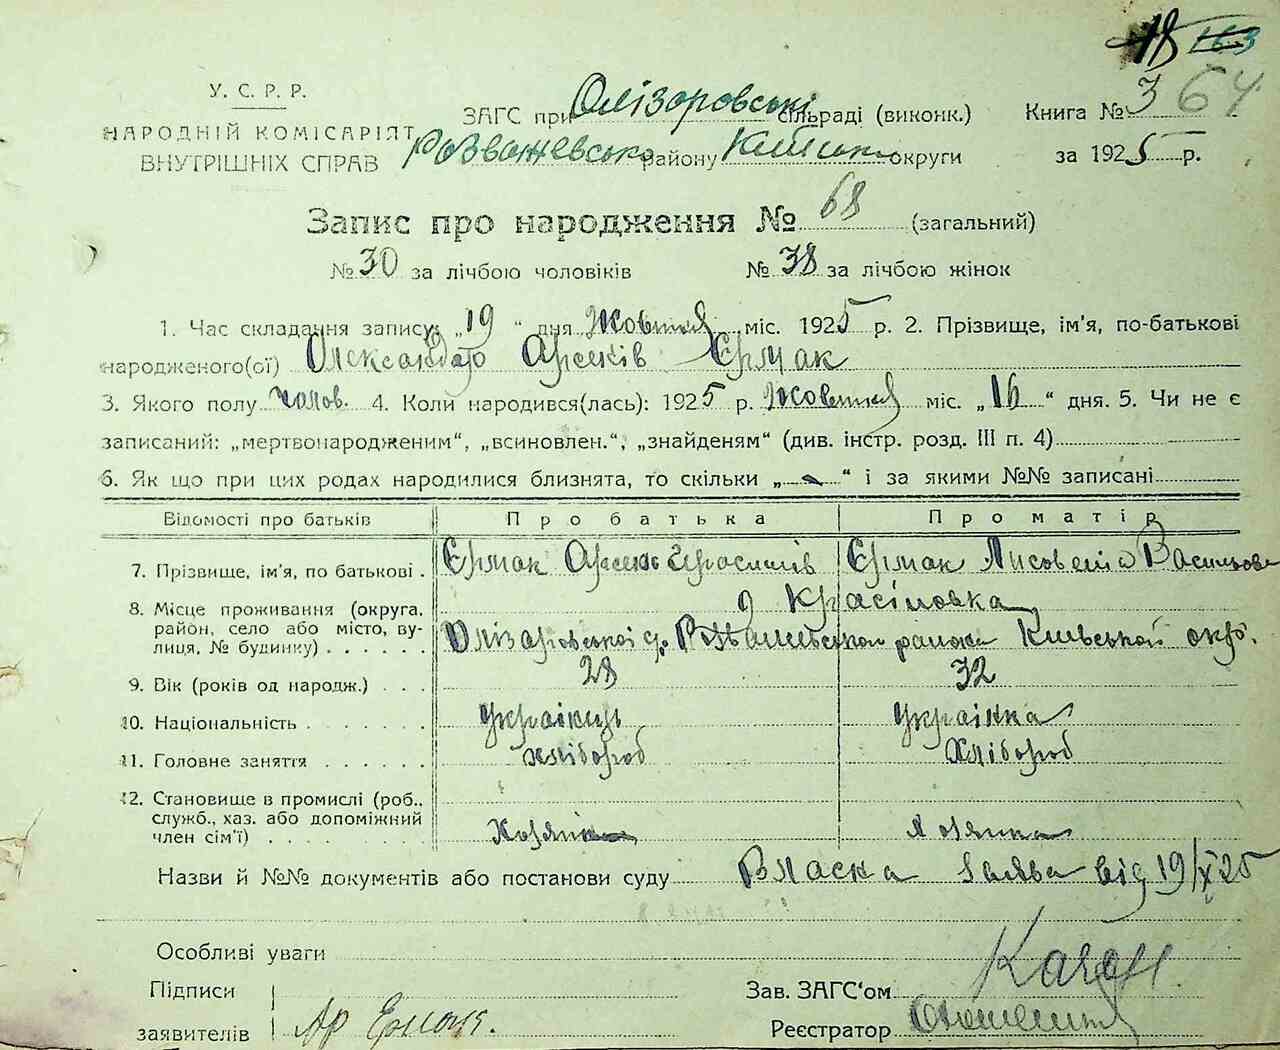 18 163
64
У. С. Р. Р.
НАРОДНІЙ КОМІСАРІЯТ
ВНУТРІШНІХ СПРАВ
ЗАГС при Олізаровські сільраді (виконк.)
Розважевсько району Київськ округи
Книга № 3
за 1925 р.
Запис про народження № 68 (загальний)
№ 30 за лічбою чоловіків № 38 за лічбою жінок
1. Час складання запису: „19“ дня Жовтня міс. 1925 р. 2. Прізвище, ім'я, по-батькові
народженого(ої) Олександр Арсенів Єрмак
3. Якого полу чолов. 4. Коли народився(лась): 1925 р. Жовтня міс. „16“ дня. 5. Чи не є
записаний: „мертвонародженим“, „всиновлен.“, „знайденям“ (див. інстр. розд. III п. 4)
6. Як що при цих родах народилися близнята, то скільки „-“ і за якими №№ записані
Відомості про батьків Про батька Про матір
7. Прізвище, ім'я, по батькові. Єрмак Арсень Герасимів Єрмак Лисовета Васильова
8. Місце проживання (округа, район, село або місто, вулиця, № будинку) д Красіловка
Олізаровської с/р Розважевського района Київської окр.
9. Вік (років од народж.) 28 32
10. Національність Українець Українка
11. Головне заняття хлібороб Хлібороб
12. Становище в промислі (роб., служб., хаз. або допоміжний член сім'ї) Хозяїн Хозяйка
Назви й №№ документів або постанови суду Власна заява від 19/X 25
Особливі уваги
Підписи
заявителів Ар Ермак.
Зав. ЗАГС'ом
Реєстратор